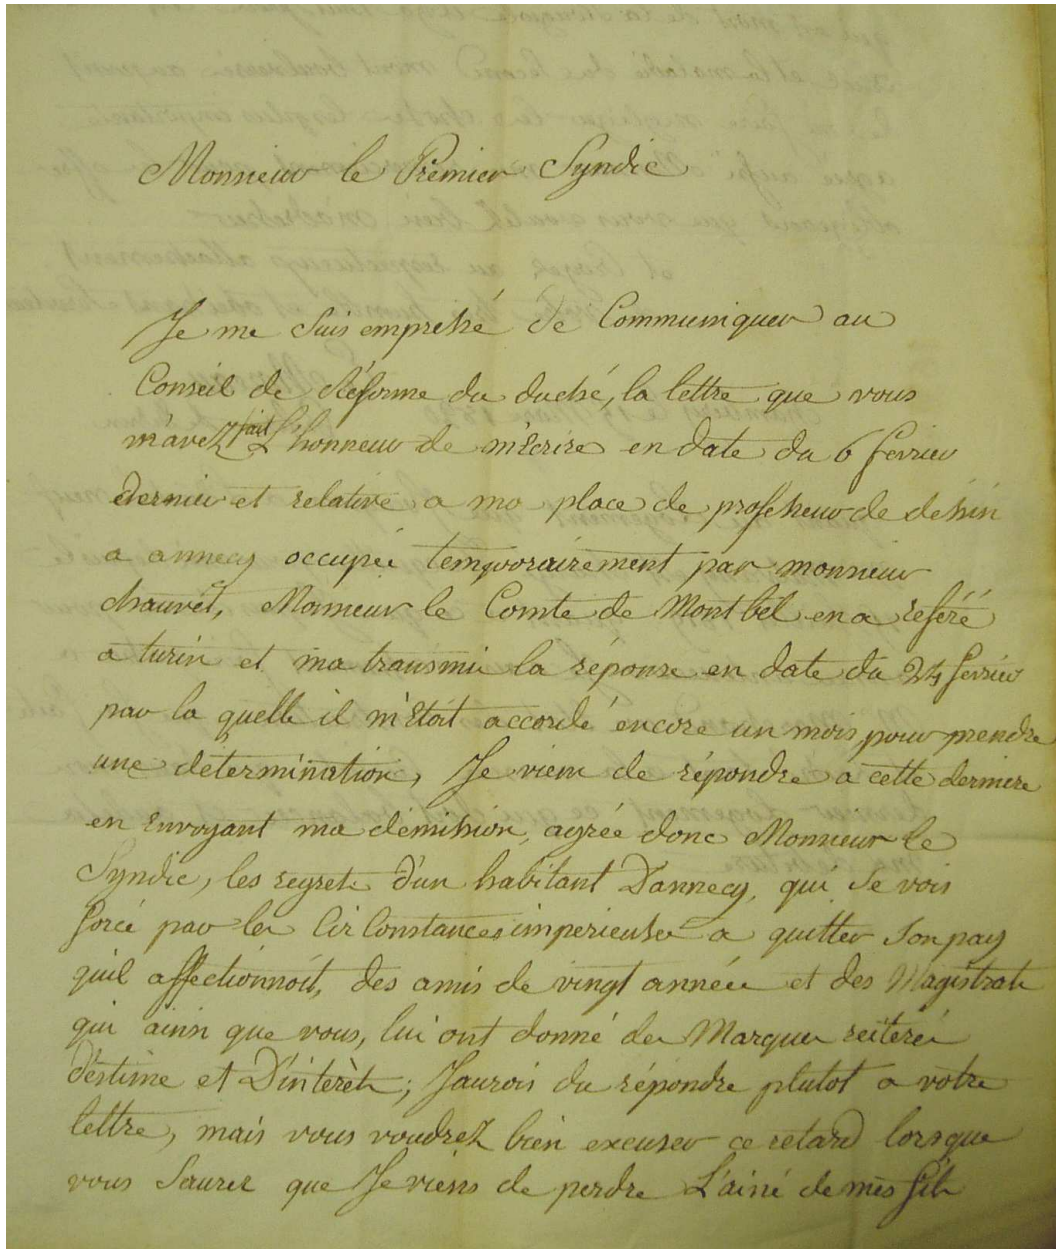 Monsieur le Prémier Syndic
Je me suis empressé de Communiquer au
Conseil de Réforme du duché, la lettre que vous
m'avez fait L'honneur de m'Ecrire en date du 6 fevrier
dernier et relative a ma place de professeur de dessin
a annecy occupée temporairement par monsieur
chauvet, Monsieur le Comte de Montbel en a référé
a turin et ma transmis la réponse en date du 24 fevrier
par la quelle il m'Etoit accordé encore un mois pour prendre
une determination, Je viens de répondre a cette derniere
en Envoyant ma démission, agrée donc Monsieur le
Syndic, les regrets d'un habitant D'annecy, qui se vois
forcé par les Circonstances imperieuses a quitter Son pays
quil affectionnoit, des amis de vingt années et des Magistrats
qui ainsi que vous, lui ont donné des Marques reiterés
d'estime et D'interèts; Jaurois du répondre plutot a votre
lettre, mais vous voudrez bien excuser ce retard lorsque
vous Saurez que Je viens de perdre L'ainé de mes fils